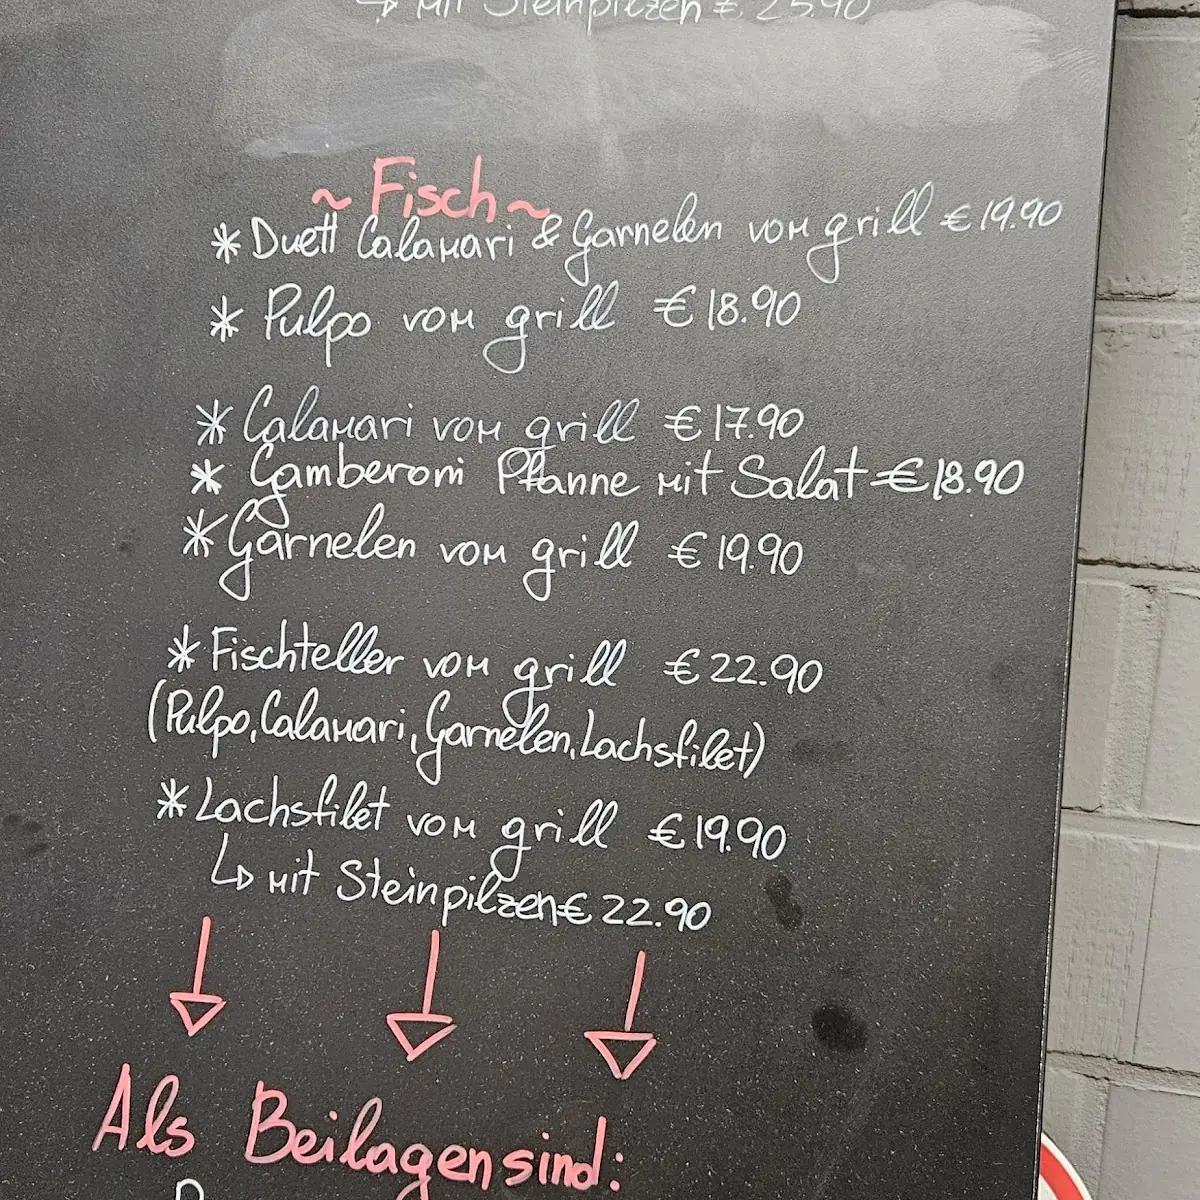 ↳ mit Steinpilzen € 25.90
~ Fisch ~
* Duett Calamari & Garnelen vom grill € 19.90
* Pulpo vom grill € 18.90
* Calamari vom grill € 17.90
* Gamberoni Pfanne mit Salat € 18.90
* Garnelen vom grill € 19.90
* Fischteller vom grill € 22.90
(Pulpo, Calamari, Garnelen, Lachsfilet)
* Lachsfilet vom grill € 19.90
↳ mit Steinpilzen € 22.90
Als Beilagen sind: